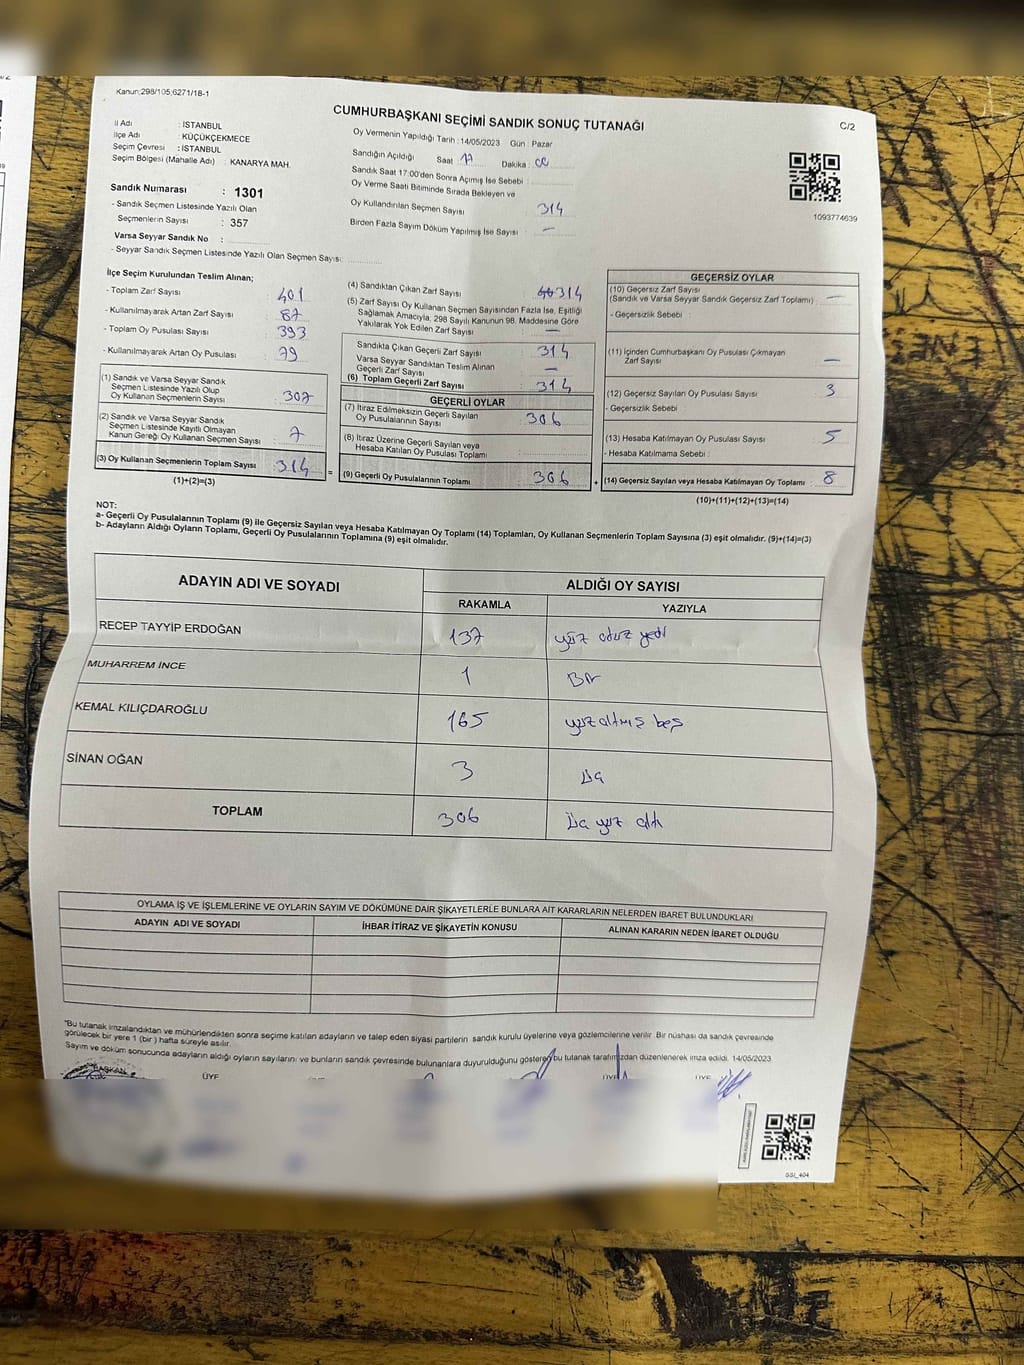 Kanun:298/105;6271/18-1
CUMHURBAŞKANI SEÇİMİ SANDIK SONUÇ TUTANAĞI
C/2
İl Adı : İSTANBUL
İlçe Adı : KÜÇÜKÇEKMECE
Seçim Çevresi : İSTANBUL
Seçim Bölgesi (Mahalle Adı) : KANARYA MAH.
Sandık Numarası : 1301
- Sandık Seçmen Listesinde Yazılı Olan
Seçmenlerin Sayısı : 357
Varsa Seyyar Sandık No :
- Seyyar Sandık Seçmen Listesinde Yazılı Olan Seçmen Sayısı:
Oy Vermenin Yapıldığı Tarih :14/05/2023 Gün : Pazar
Sandığın Açıldığı Saat 17 Dakika : 00
Sandık Saat 17:00'den Sonra Açımış İse Sebebi :
Oy Verme Saati Bitiminde Sırada Bekleyen ve
Oy Kullandırılan Seçmen Sayısı : 314
Birden Fazla Sayım Döküm Yapılmış İse Sayısı : —
1093774639
İlçe Seçim Kurulundan Teslim Alınan;
- Toplam Zarf Sayısı : 401
- Kullanılmayarak Artan Zarf Sayısı : 87
- Toplam Oy Pusulası Sayısı : 393
- Kullanılmayarak Artan Oy Pusulası : 79
(1) Sandık ve Varsa Seyyar Sandık
Seçmen Listesinde Yazılı Olup
Oy Kullanan Seçmenlerin Sayısı : 307
(2) Sandık ve Varsa Seyyar Sandık
Seçmen Listesinde Kayıtlı Olmayan
Kanun Gereği Oy Kullanan Seçmen Sayısı : 7
(3) Oy Kullanan Seçmenlerin Toplam Sayısı : 314
(1)+(2)=(3)
(4) Sandıktan Çıkan Zarf Sayısı : 314
(5) Zarf Sayısı Oy Kullanan Seçmen Sayısından Fazla İse, Eşitliği
Sağlamak Amacıyla, 298 Sayılı Kanunun 98. Maddesine Göre
Yakılarak Yok Edilen Zarf Sayısı : —
Sandıkta Çıkan Geçerli Zarf Sayısı : 314
Varsa Seyyar Sandıktan Teslim Alınan
Geçerli Zarf Sayısı : —
(6) Toplam Geçerli Zarf Sayısı : 314
GEÇERLİ OYLAR
(7) İtiraz Edilmeksizin Geçerli Sayılan
Oy Pusulalarının Sayısı : 306
(8) İtiraz Üzerine Geçerli Sayılan veya
Hesaba Katılan Oy Pusulası Toplamı :
= (9) Geçerli Oy Pusulalarının Toplamı : 306 +
GEÇERSİZ OYLAR
(10) Geçersiz Zarf Sayısı
(Sandık ve Varsa Seyyar Sandık Geçersiz Zarf Toplamı) : —
- Geçersizlik Sebebi :
(11) İçinden Cumhurbaşkanı Oy Pusulası Çıkmayan
Zarf Sayısı : —
(12) Geçersiz Sayılan Oy Pusulası Sayısı : 3
- Geçersizlik Sebebi :
(13) Hesaba Katılmayan Oy Pusulası Sayısı : 5
- Hesaba Katılmama Sebebi :
(14) Geçersiz Sayılan veya Hesaba Katılmayan Oy Toplamı : 8
(10)+(11)+(12)+(13)=(14)
NOT:
a- Geçerli Oy Pusulalarının Toplamı (9) ile Geçersiz Sayılan veya Hesaba Katılmayan Oy Toplamı (14) Toplamları, Oy Kullanan Seçmenlerin Toplam Sayısına (3) eşit olmalıdır. (9)+(14)=(3)
b- Adayların Aldığı Oyların Toplamı, Geçerli Oy Pusulalarının Toplamına (9) eşit olmalıdır.
ADAYIN ADI VE SOYADI ALDIĞI OY SAYISI
RAKAMLA YAZIYLA
RECEP TAYYİP ERDOĞAN 137 yüz otuz yedi
MUHARREM İNCE 1 Bir
KEMAL KILIÇDAROĞLU 165 yüz altmış beş
SİNAN OĞAN 3 Üç
TOPLAM 306 Üç yüz altı
OYLAMA İŞ VE İŞLEMLERİNE VE OYLARIN SAYIM VE DÖKÜMÜNE DAİR ŞİKAYETLERLE BUNLARA AİT KARARLARIN NELERDEN İBARET BULUNDUKLARI
ADAYIN ADI VE SOYADI İHBAR İTİRAZ VE ŞİKAYETİN KONUSU ALINAN KARARIN NEDEN İBARET OLDUĞU
"Bu tutanak imzalandıktan ve mühürlendikten sonra seçime katılan adayların ve talep eden siyasi partilerin sandık kurulu üyelerine veya gözlemcilerine verilir. Bir nüshası da sandık çevresinde
görülecek bir yere 1 (bir ) hafta süreyle asılır.
Sayım ve döküm sonucunda adayların aldığı oyların sayılarını ve bunların sandık çevresinde bulunanlara duyurulduğunu gösteren bu tutanak tarafımızdan düzenlenerek imza edildi. 14/05/2023
BAŞKAN ÜYE ÜYE ÜYE
GSI_404